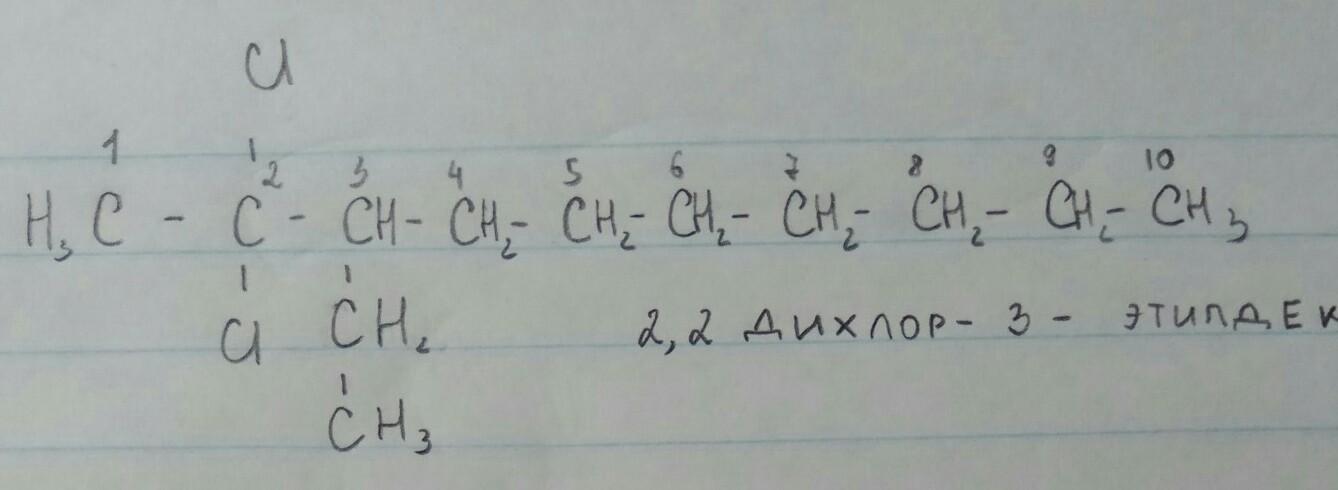 Cl
1 2 3 4 5 6 7 8 9 10
H₃C - C - CH - CH₂ - CH₂ - CH₂ - CH₂ - CH₂ - CH₂ - CH₃
Cl CH₂ 2,2 дихлор- 3 - этилдек
CH₃